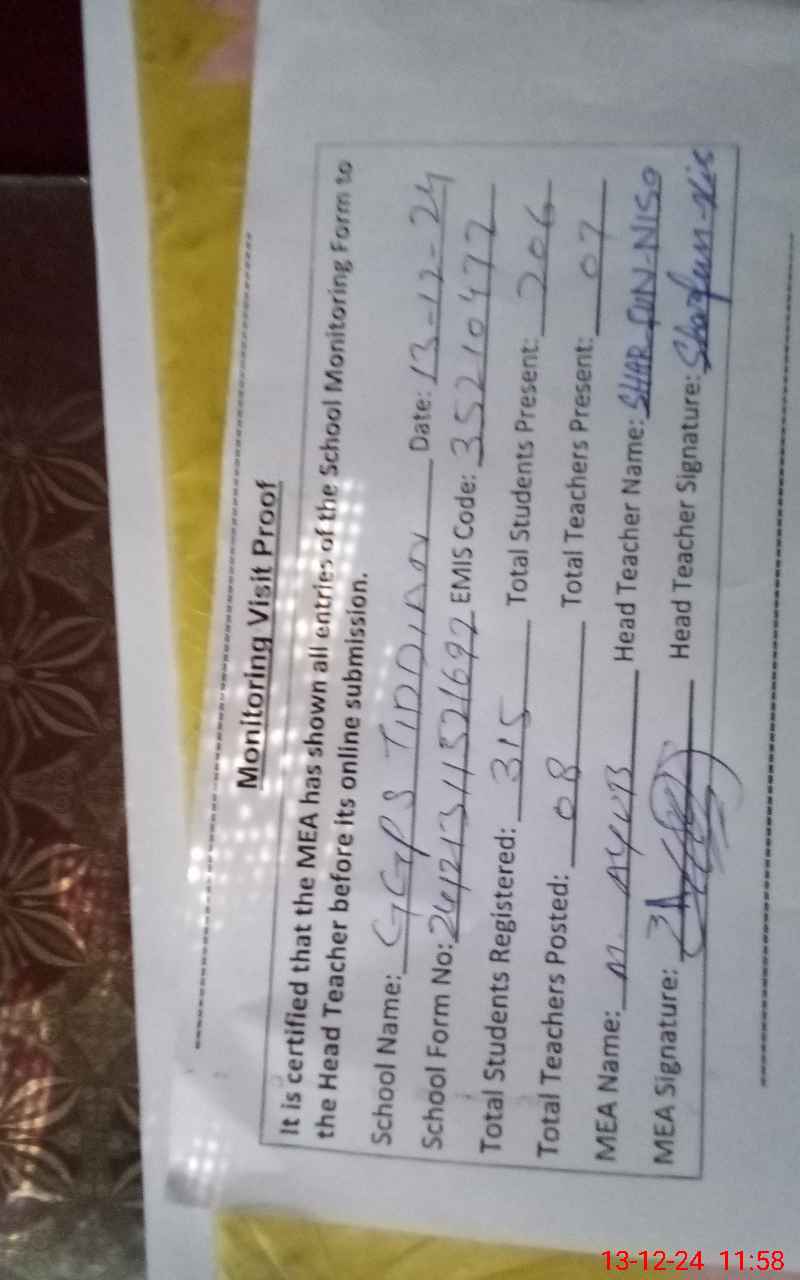 Monitoring Visit Proof
It is certified that the MEA has shown all entries of the School Monitoring Form to
the Head Teacher before its online submission.
School Name: GGPS TIDDIAN Date: 13-12-24
School Form No: EMIS Code: 35210477
Total Students Registered: 315 Total Students Present: 206
Total Teachers Posted: 08 Total Teachers Present: 07
MEA Name: M. AYUB Head Teacher Name: SHARFUN-NISO
MEA Signature: Head Teacher Signature: Sharfun-Nis
13-12-24 11:58